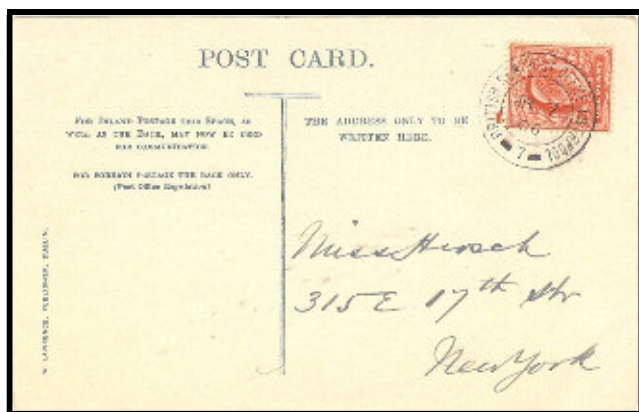 POST CARD.
FOR INLAND POSTAGE THIS SPACE, AS
WELL AS THE BACK, MAY NOW BE USED
FOR COMMUNICATION.
FOR FOREIGN POSTAGE THE BACK ONLY.
(Post Office Regulation)
THE ADDRESS ONLY TO BE
WRITTEN HERE.
Miss Hirsch
315 E 17th Str
New York
W. LAWRENCE, PUBLISHER, DUBLIN.